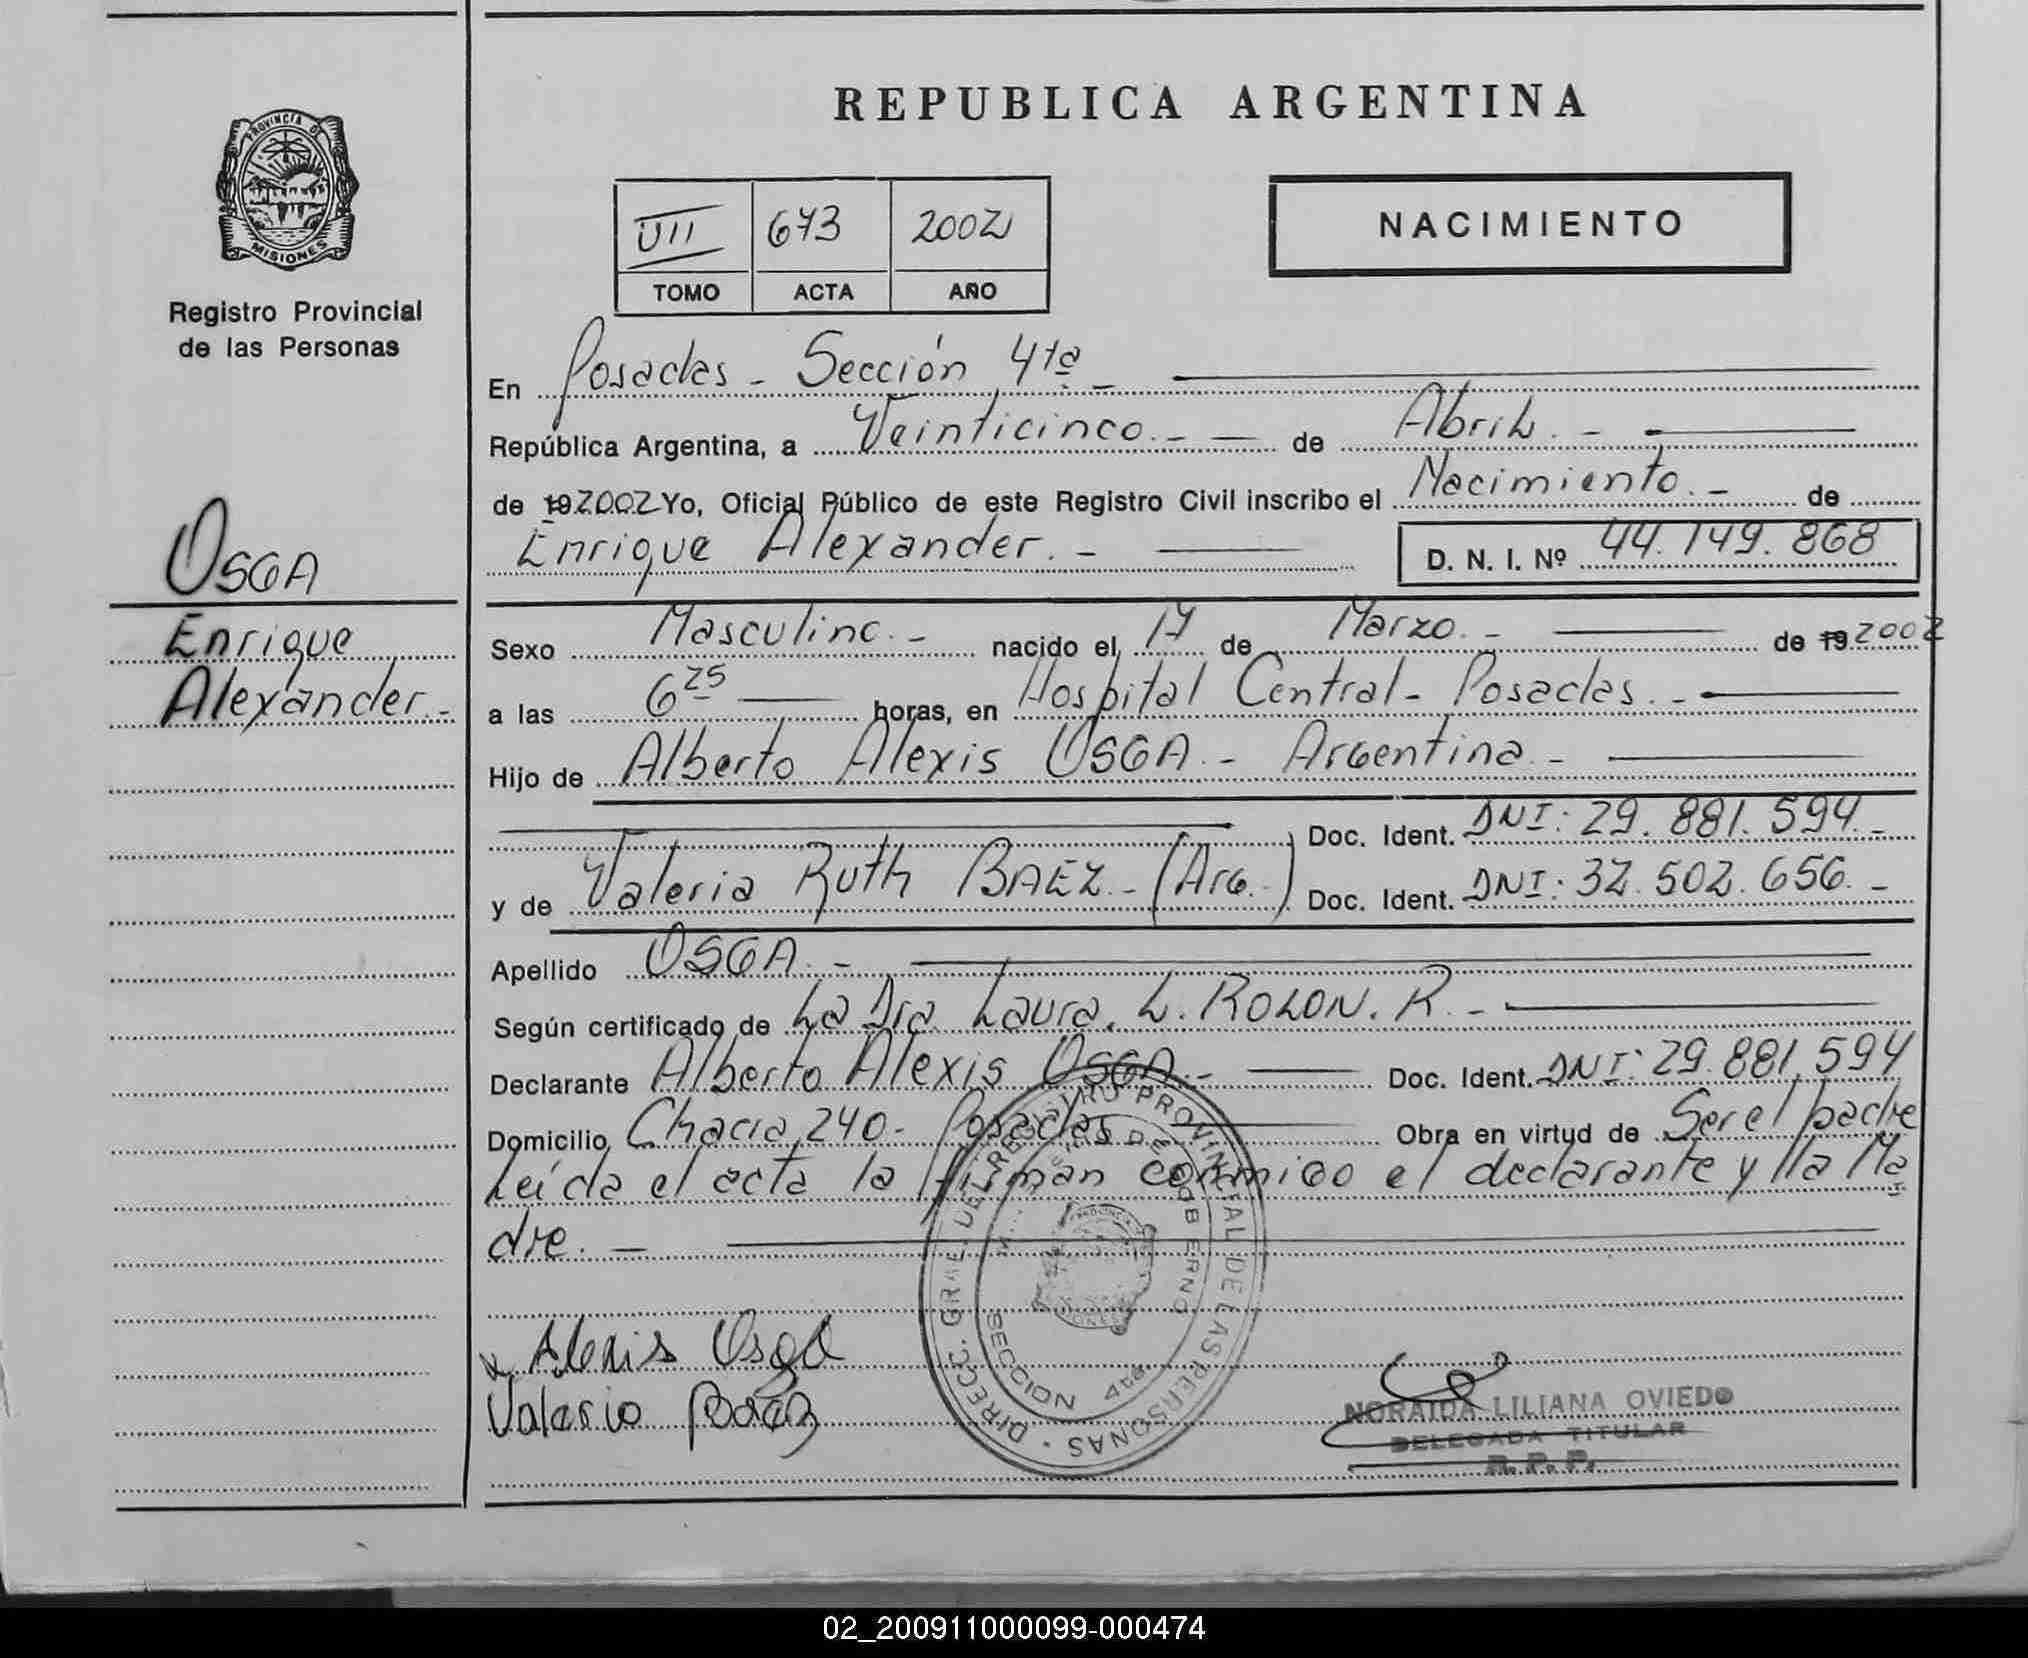 REPUBLICA ARGENTINA
PROVINCIA DE
MISIONES
Registro Provincial
de las Personas
VII 673 2002
TOMO ACTA AÑO
NACIMIENTO
En Posadas - Sección 4ta -
República Argentina, a Veinticinco. - de Abril. -
de 19 2002 Yo, Oficial Público de este Registro Civil inscribo el Nacimiento. - de
Enrique Alexander. - D. N. I. Nº 44.149.868
OSGA
Enrique
Alexander. -
Sexo Masculino. - nacido el 17 de Marzo. - de 19 2002
a las 6 25 horas, en Hospital Central - Posadas. -
Hijo de Alberto Alexis OSGA. - Argentina. -
Doc. Ident. DNI: 29.881.594. -
y de Valeria Ruth BAEZ. - (Arg.) Doc. Ident. DNI: 32.502.656. -
Apellido OSGA. -
Según certificado de La Dra Laura. L. ROLON. R. -
Declarante Alberto Alexis OSGA. - Doc. Ident. DNI: 29.881.594
Domicilio Chacra 240 - Posadas Obra en virtud de Ser el padre
Leída el acta la firman conmigo el declarante y la Ma
dre. -
DIRECC. GRAL. DEL REGISTRO PROVINCIAL DE LAS PERSONAS
DE GOBIERNO
SECCION 4ta
Alexis Osga
Valeria Baez
NORAIDA LILIANA OVIEDO
DELEGADA TITULAR
R. P. P.
02_200911000099-000474